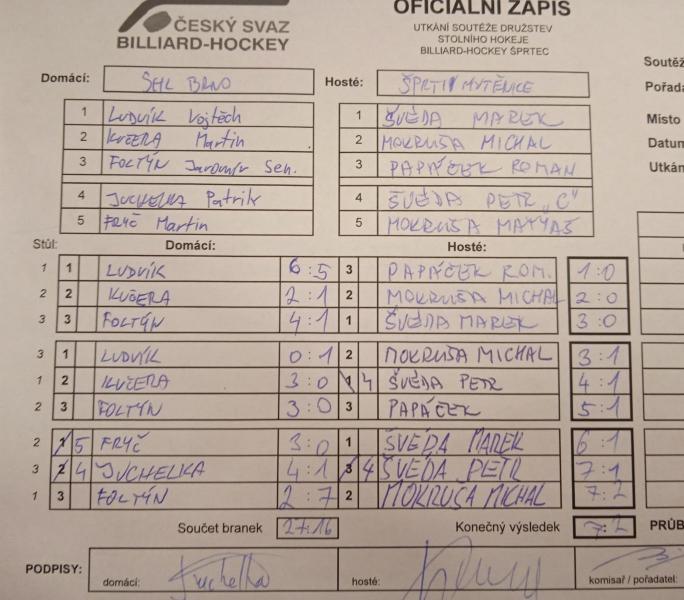 ČESKÝ SVAZ
BILLIARD-HOCKEY
OFICIÁLNÍ ZÁPIS
UTKÁNÍ SOUTĚŽE DRUŽSTEV
STOLNÍHO HOKEJE
BILLIARD-HOCKEY ŠPRTEC
Soutěž
Domácí: SHL BRNO Hosté: ŠPRTI MUTĚNICE
Pořada
1 LUDVÍK Vojtěch 1 ŠVÉDA MAREK Místo
2 KUČERA Martin 2 MOKRUŠA MICHAL Datum
3 FOLTÝN Jaromír Sen. 3 PAPÁČEK ROMAN Utkán
4 JUCHELKA Patrik 4 ŠVÉDA PETR „C"
5 FRYČ Martin 5 MOKRUŠA MATYÁŠ
Stůl: Domácí: Hosté:
1 1 LUDVÍK 6:5 3 PAPÁČEK ROM. 1:0
2 2 KUČERA 2:1 2 MOKRUŠA MICHAL 2:0
3 3 FOLTÝN 4:1 1 ŠVÉDA MAREK 3:0
3 1 LUDVÍK 0:1 2 MOKRUŠA MICHAL 3:1
1 2 KUČERA 3:0 1 4 ŠVÉDA PETR 4:1
2 3 FOLTÝN 3:0 3 PAPÁČEK 5:1
2 1 5 FRYČ 3:0 1 ŠVÉDA MAREK 6:1
3 2 4 JUCHELKA 4:1 3 4 ŠVÉDA PETR 7:1
1 3 FOLTÝN 2:7 2 MOKRUŠA MICHAL 7:2
Součet branek 27:16 Konečný výsledek 7:2 PRŮB
PODPISY: domácí: Juchelka hosté: komisař / pořadatel: